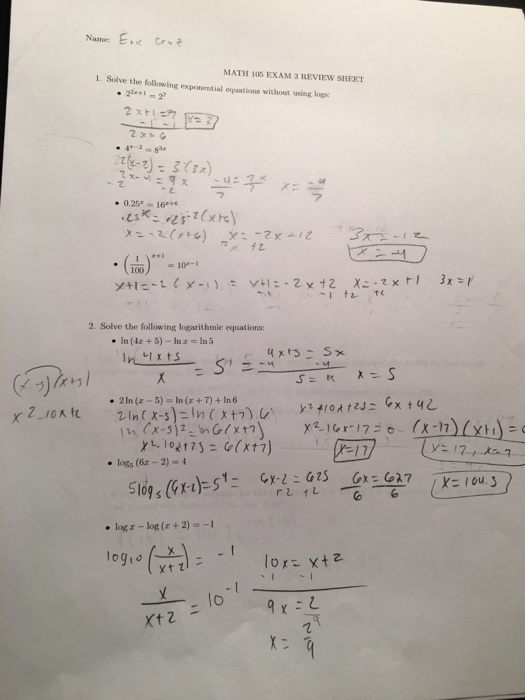 Name: Eric Cruz
MATH 105 EXAM 3 REVIEW SHEET
1. Solve the following exponential equations without using logs:
• 2^{2x+1} = 2^7
2x+1=7
-1 -1
x=3
2x=6
• 4^{x-2} = 8^{3x}
2(x-2) = 3(3x)
2x-4 = 9x
-2 -2
-4 = 7x
7 7
x= -4/7
• 0.25^x = 16^{x+6}
.25^x = .25^{-2(x+6)}
x=-2(x+6) x=-2x-12 3x=-12
+2x +2
x=-4
• (1/100)^{x+1} = 10^{x-1}
x+1=-2(x-1) = x+1=-2x+2 x=-2x+1 3x=1
-1 -1 +2 +2
2. Solve the following logarithmic equations:
• ln (4x + 5) − ln x = ln 5
ln 4x+5 / x = 5 = 4x+5 = 5x
-4 -4
5 = x x=5
(x-5)(x+5)
x^2-10x+
• 2 ln (x − 5) = ln (x + 7) + ln 6
2ln(x-5)=ln(x+7)6 x^2-10x+25= 6x+42
ln(x-5)^2=ln6(x+7) x^2-16x-17=0 (x-17)(x+1)=0
x^2-10x+25=6(x+7) x=17 x=17,
• log_5 (6x − 2) = 4
5log_5(6x-2)=5^4= 6x-2=625 6x=627 x=104.5
+2 +2 6 6
• log x − log (x + 2) = −1
log_10 (x/x+2) = -1 10x=x+2
-1 -1
x/x+2 = 10^{-1} 9x=2
x=2/9